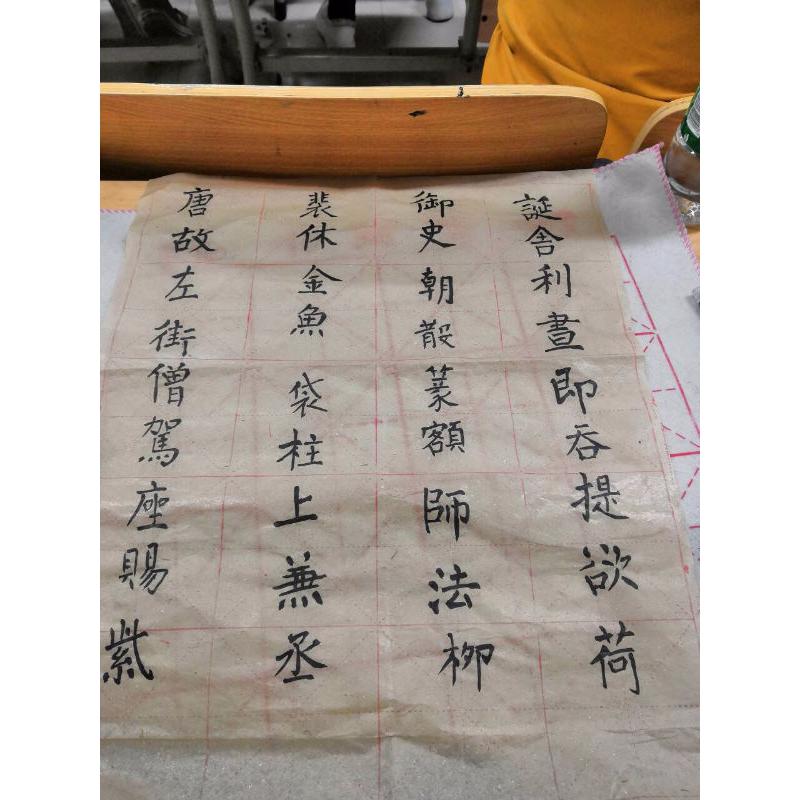 唐故左街僧駕座賜紫
裴休金魚袋柱上兼丞
御史朝散篆額師法柳
誕舍利晝即吞提欲荷